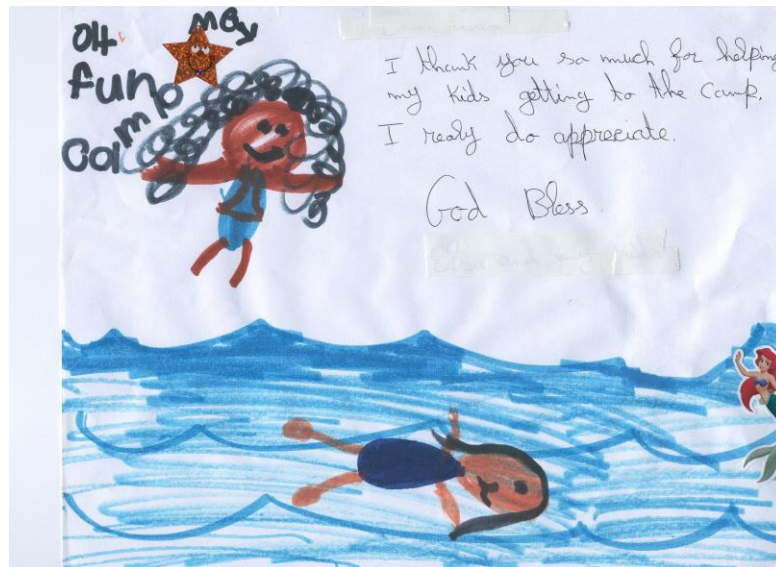 OH may
fun
Camp
I thank you so much for helping
my kids getting to the Camp.
I realy do appreciate.
God Bless.